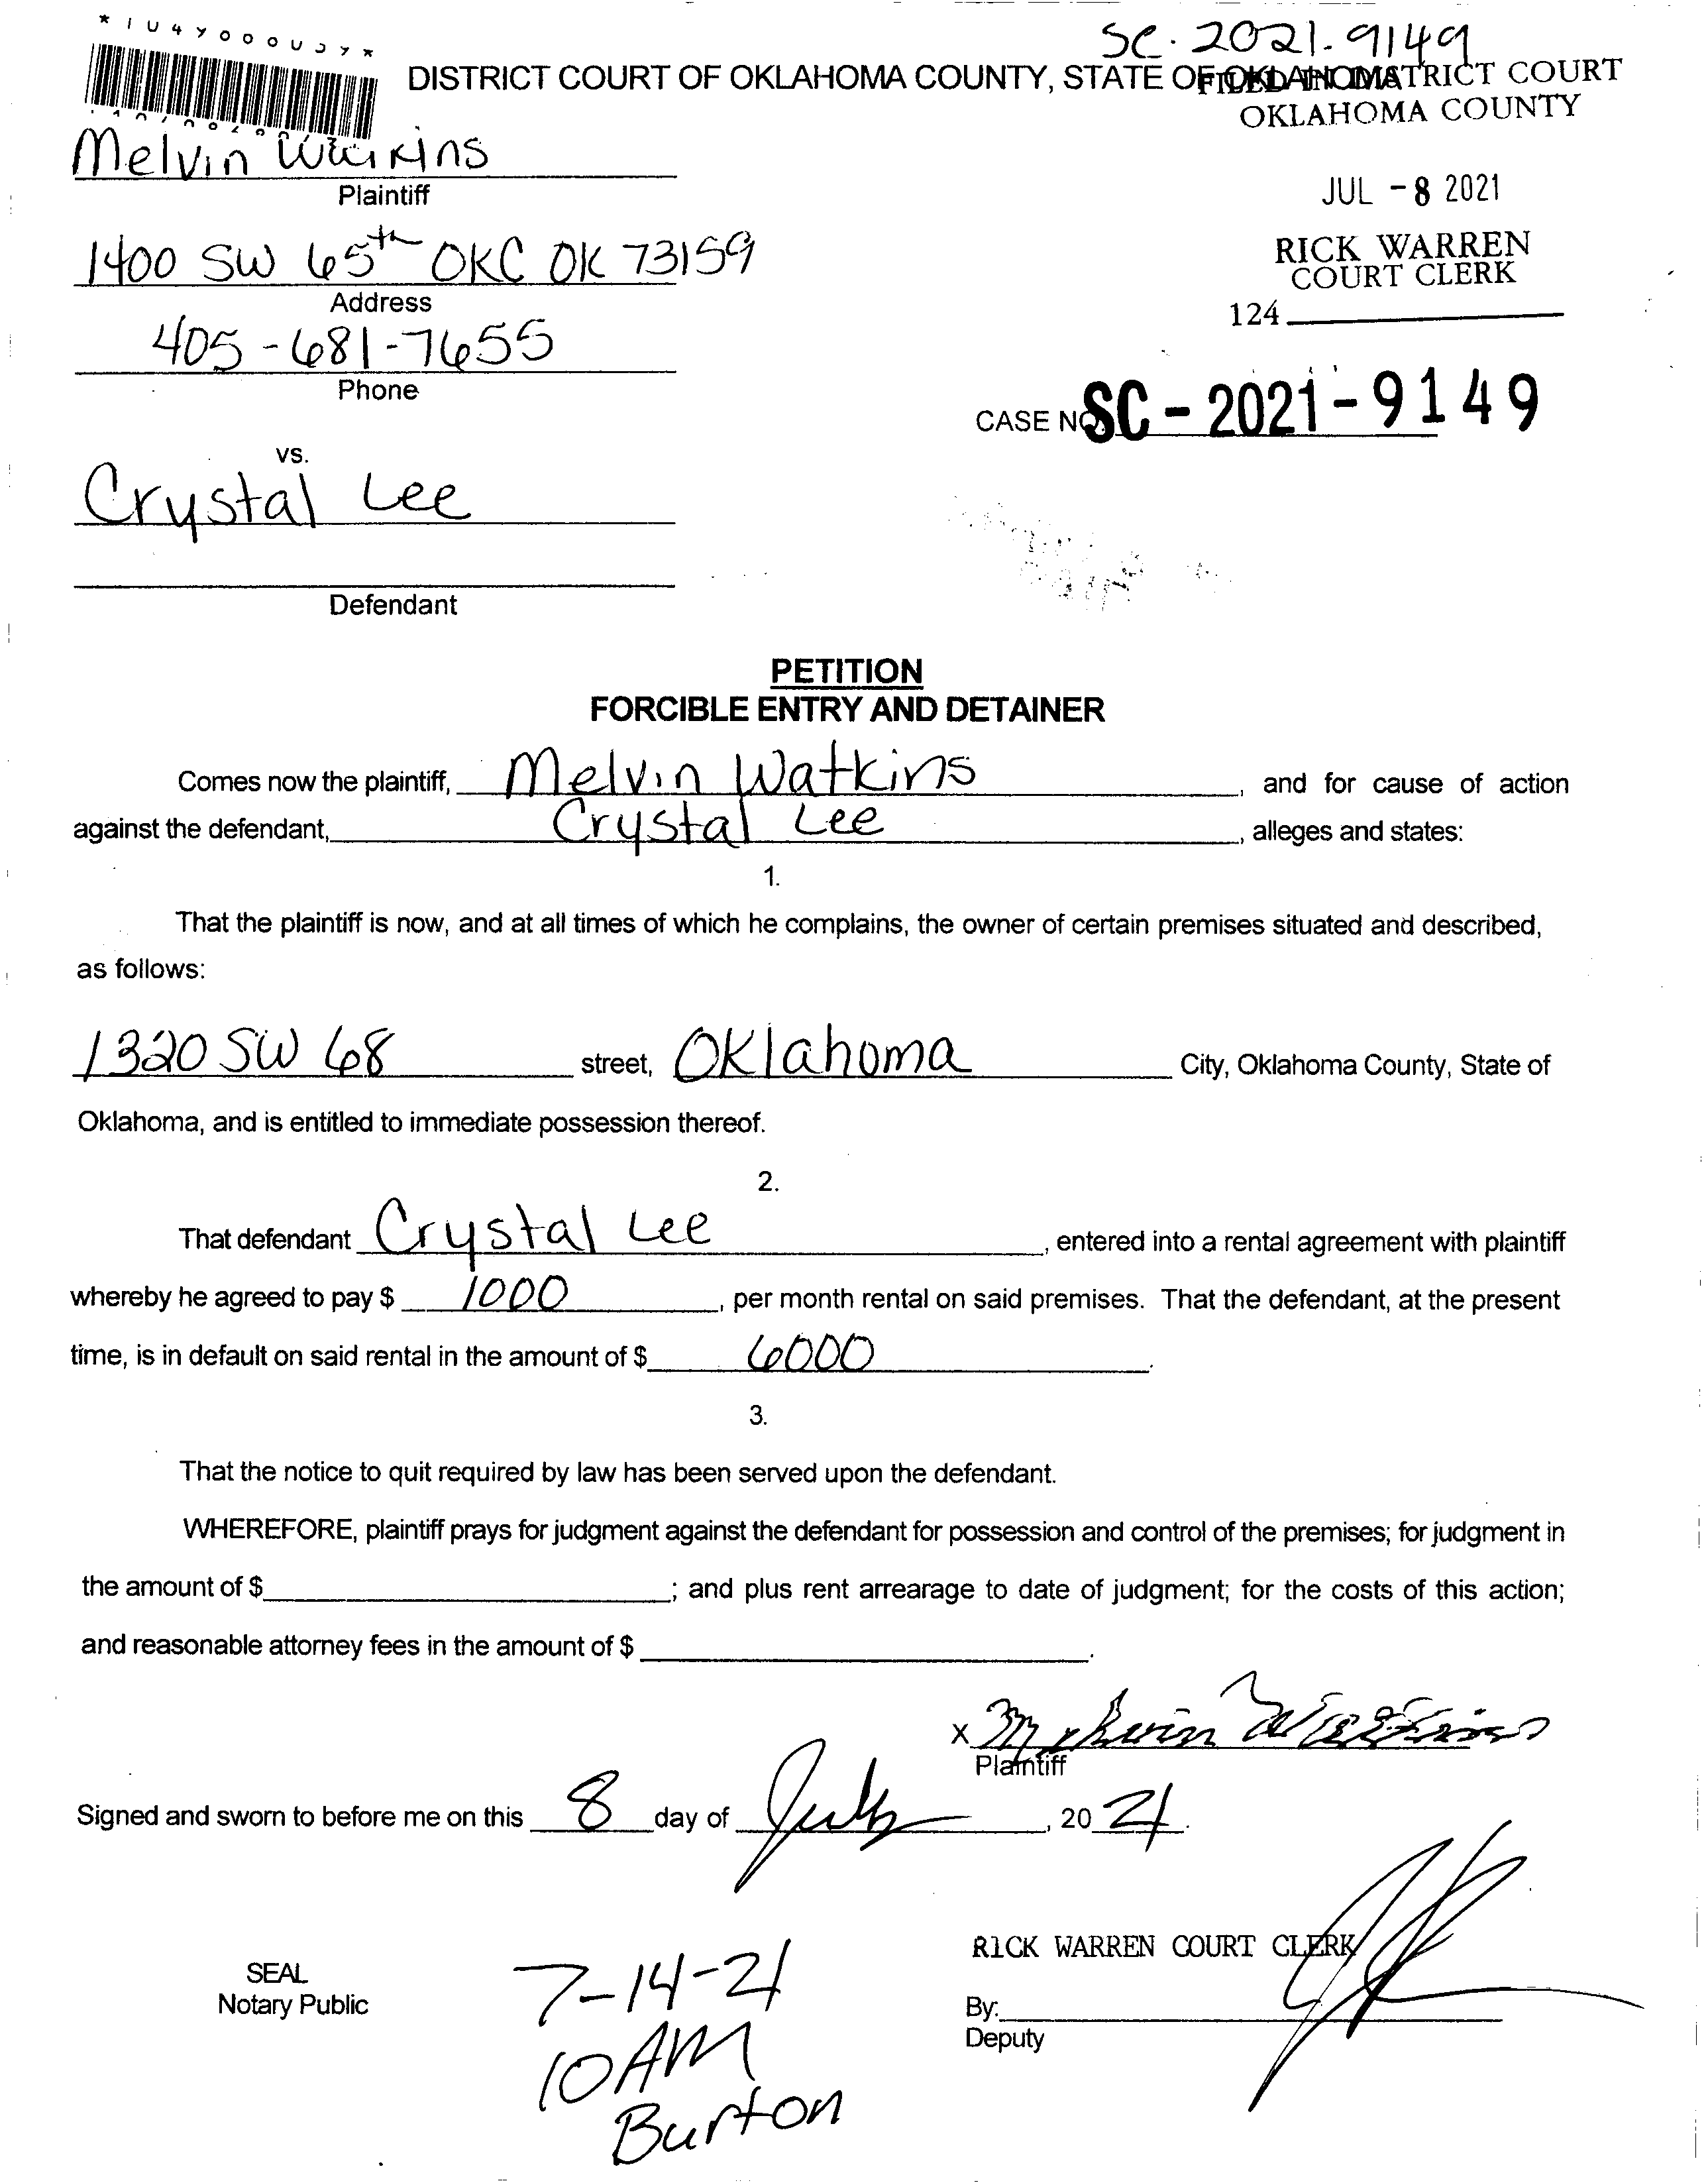 SC-2021-9149
DISTRICT COURT OF OKLAHOMA COUNTY, STATE OF OKLAHOMA
FILED IN DISTRICT COURT
OKLAHOMA COUNTY
Melvin Watkins
Plaintiff
JUL -8 2021
1400 SW 65th OKC OK 73159
Address
RICK WARREN
COURT CLERK
124
405-681-7655
Phone
CASE NO. SC-2021-9149
vs.
Crystal Lee
Defendant
PETITION
FORCIBLE ENTRY AND DETAINER
Comes now the plaintiff, Melvin Watkins, and for cause of action
against the defendant, Crystal Lee, alleges and states:
1.
That the plaintiff is now, and at all times of which he complains, the owner of certain premises situated and described,
as follows:
1320 SW 68 street, Oklahoma City, Oklahoma County, State of
Oklahoma, and is entitled to immediate possession thereof.
2.
That defendant Crystal Lee, entered into a rental agreement with plaintiff
whereby he agreed to pay $ 1000, per month rental on said premises. That the defendant, at the present
time, is in default on said rental in the amount of $ 6000.
3.
That the notice to quit required by law has been served upon the defendant.
WHEREFORE, plaintiff prays for judgment against the defendant for possession and control of the premises; for judgment in
the amount of $ ; and plus rent arrearage to date of judgment; for the costs of this action;
and reasonable attorney fees in the amount of $ .
X Melvin Watkins
Plaintiff
Signed and sworn to before me on this 8 day of July, 20 21.
RICK WARREN COURT CLERK
SEAL
Notary Public
7-14-21
10 AM
Burton
By:
Deputy